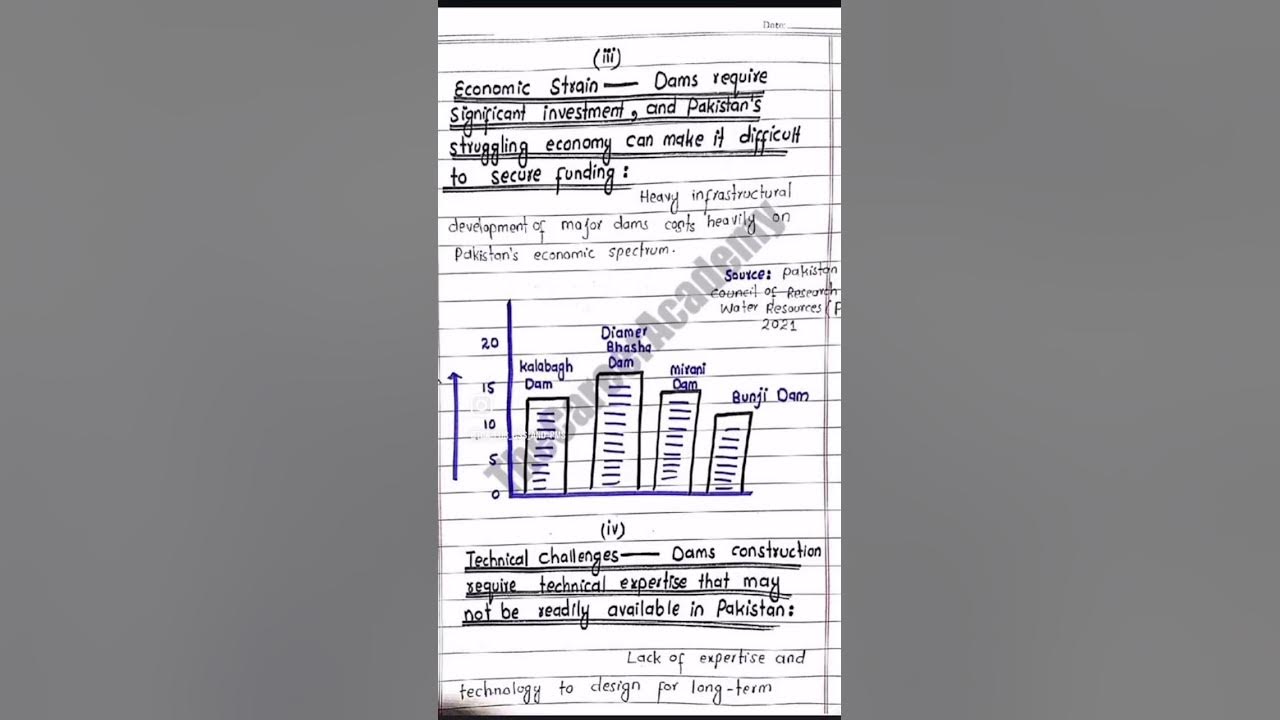 Date:
(iii)
Economic Strain — Dams require
significant investment, and Pakistan's
struggling economy can make it difficult
to secure funding:
Heavy infrastructural
development of major dams costs heavily on
Pakistan's economic spectrum.
Source: Pakistan
Council of Research
Water Resources (P
2021
20
15
10
5
0
Kalabagh
Dam
Diamer
Bhasha
Dam
Mirani
Dam
Bunji Dam
Academy
(iv)
Technical Challenges — Dams construction
require technical expertise that may
not be readily available in Pakistan:
Lack of expertise and
technology to design for long-term